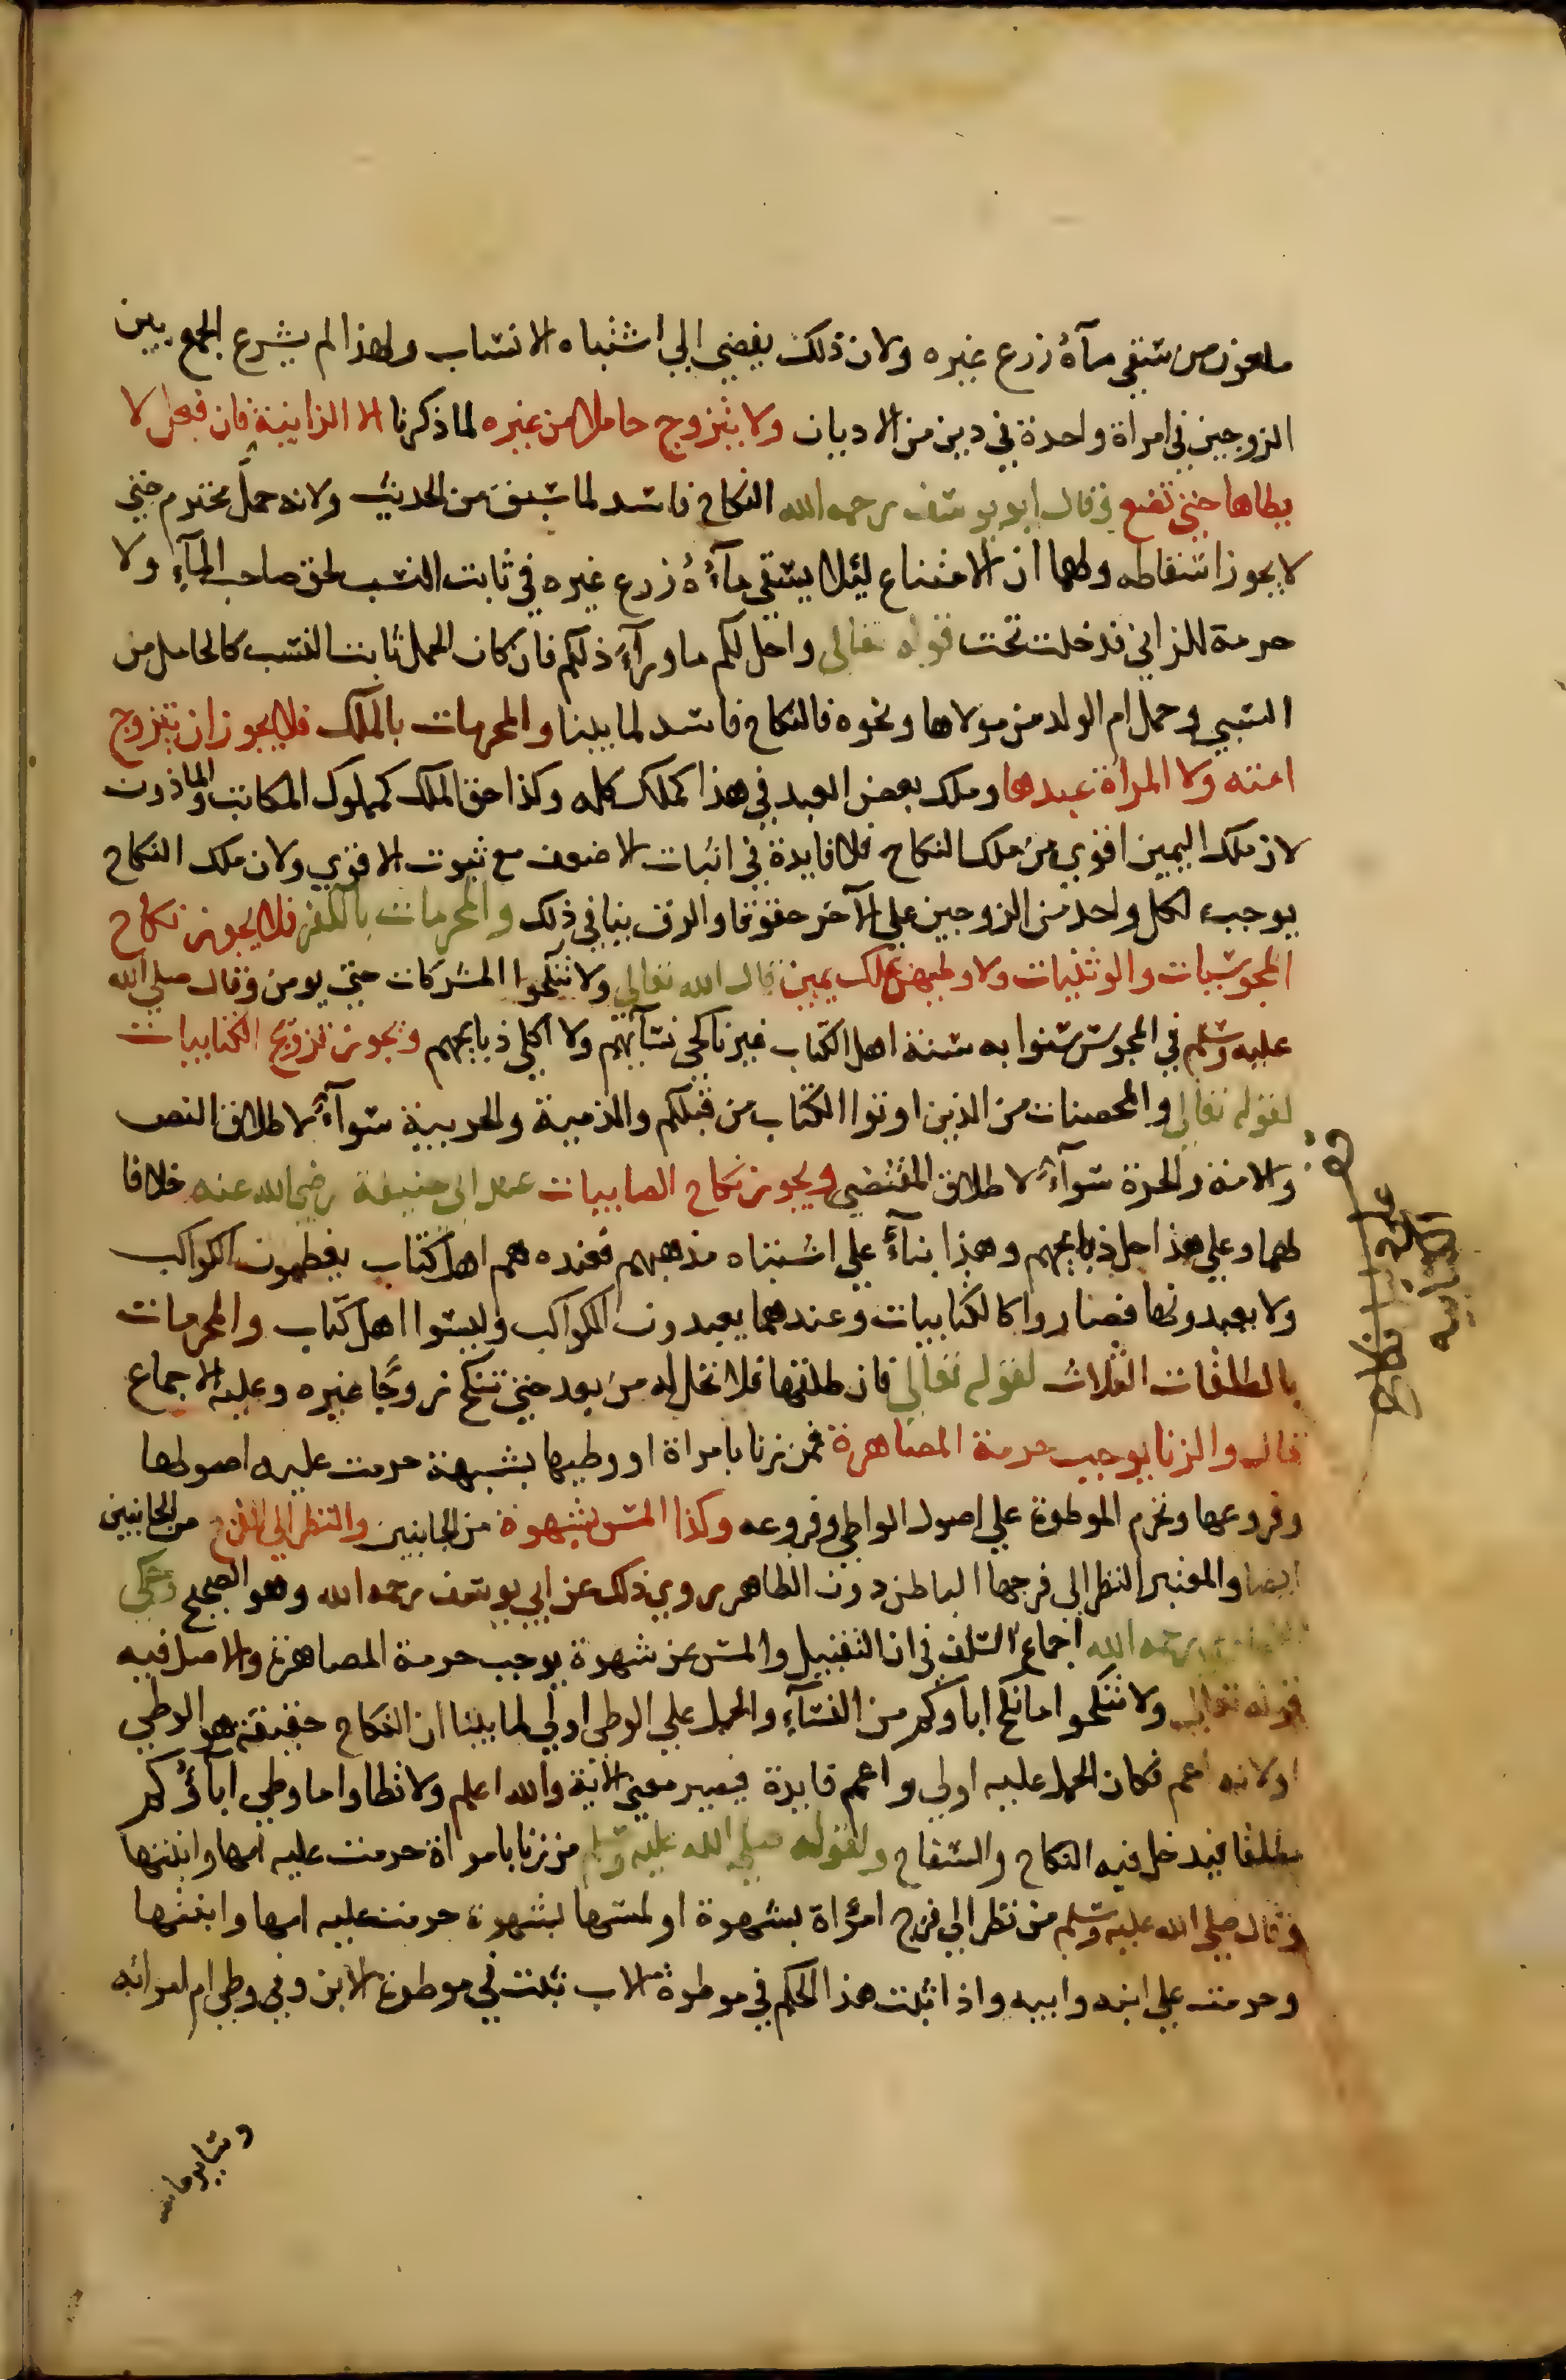 ملعون من سقى مآءُه زرع غيره ولان ذلك يفضي الى اشتباه الانساب ولهذا لم يشرع الجمع بين
الزوجين في امراة واحدة في دين من الاديان ولا يتزوج حاملا من غيره لما ذكرنا الا الزانية فان فعل لا
يطاها حتى تضع وقال ابو يوسف رحمه الله النكاح فاسد لما سبق من الحديث ولانه حمل محترم حتى
لا يجوز اسقاطه ولهما ان الامتناع ليلا يسقى مآءُه زرع غيره في ثابت النسب لحق صاحب المآء ولا
حرمة للزاني فدخلت تحت قوله تعالى واحل لكم ما ورآء ذلكم فان كان الحمل ثابت النسب كالحامل من
السبي وحمل ام الولد من مولاها ونحوه فالنكاح فاسد لما بينا والمحرمات بالملك فلا يجوز ان يتزوج
امته ولا المراة عبدها وملك بعض العبد في هذا كملك كله وكذا حق الملك كمملوك المكاتب والماذون
لان ملك اليمين اقوى من ملك النكاح فلا فايدة في اثبات الاضعف مع ثبوت الاقوى ولان ملك النكاح
يوجب لكل واحد من الزوجين على الآخر حقوقا والرق ينافي ذلك والمحرمات بالكفر فلا يجوز نكاح
المجوسيات والوثنيات ولا وطيهن بملك يمين قال الله تعالى ولا تنكحوا المشركات حتى يومن وقال صلى الله
عليه وسلم في المجوس سنوا به سنة اهل الكتاب غير ناكحي نسآئهم ولا آكلي ذبايحهم ويجوز تزويج الكتابيات
لقوله تعالى والمحصنات من الذين اوتوا الكتاب من قبلكم والذمية والحربية سوآء لاطلاق النص
والامة والحرة سوآء لاطلاق المقتضي ويجوز نكاح الصابيات عند ابي حنيفة رضي الله عنه خلافا
لهما وعلى هذا حل ذبايحهم وهذا بنآءً على اشتباه مذهبهم فعنده هم اهل كتاب يعظمون الكواكب
ولا يعبدونها فصاروا كالكتابيات وعندهما يعبدون الكواكب وليسوا اهل كتاب والمحرمات
بالطلقات الثلاث لقوله تعالى فان طلقها فلا تحل له من بعد حتى تنكح زوجًا غيره وعليه الاجماع
قال والزنا يوجب حرمة المصاهرة فمن زنا بامراة او وطيها بشبهة حرمت عليه اصولها
وفروعها وتحرم الموطوة على اصول الواطي وفروعه وكذا المس بشهوة من الجانبين والنظر الى الفرج من الجانبين
ايضا والمعتبر النظر الى فرجها الباطن دون الظاهر روي ذلك عن ابي يوسف رحمه الله وهو الصحيح وحكى
رحمه الله اجماع السلف في ان التقبيل والمس عن شهوة يوجب حرمة المصاهرة والاصل فيه
قوله تعالى ولا تنكحوا ما نكح اباوكم من النسآء والحمل على الوطى اولى لما بينا ان النكاح حقيقة هو الوطي
او لانه اعم فكان الحمل عليه اولى واعم فايدة فيصير معنى الاية والله اعلم ولا تطاوا ما وطي آباؤكم
مطلقا فيدخل فيه النكاح والسفاح ولقوله صلى الله عليه وسلم من زنا بامراة حرمت عليه امها وابنتها
وقال صلى الله عليه وسلم من نظر الى فرج امراة بشهوة او لمسها بشهوة حرمت عليه امها وابنتها
وحرمت على ابنه وابيه واذا ثبت هذا الحكم في موطوة الاب ثبت في موطوة الابن وفي وطي ام امراته
الكتابيه